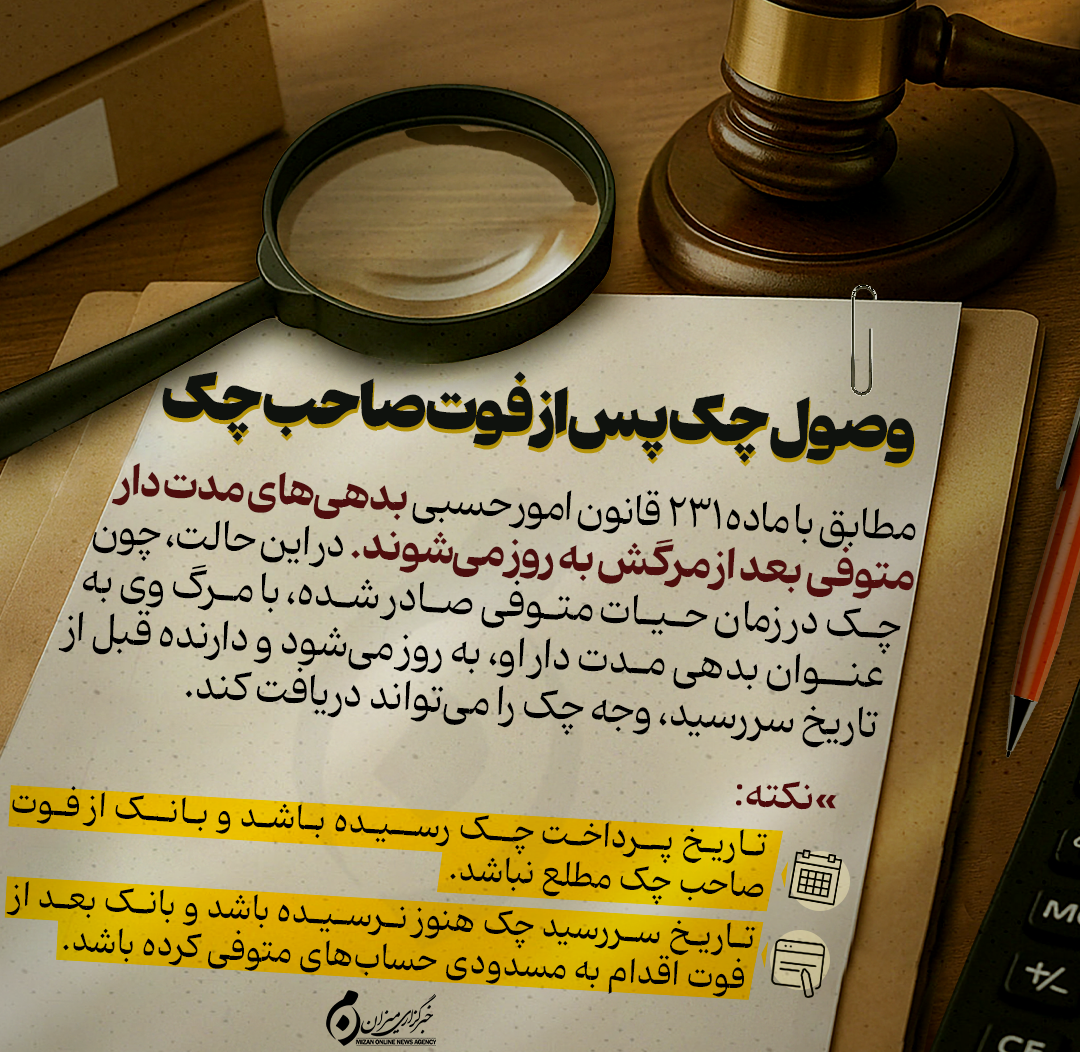 وصول چک پس از فوت صاحب چک
مطابق با ماده ۲۳۱ قانون امور حسبی بدهی‌های مدت دار
متوفی بعد از مرگش به روز می‌شوند. در این حالت، چون
چک در زمان حیات متوفی صادر شده، با مرگ وی به
عنوان بدهی مدت دار او، به روز می‌شود و دارنده قبل از
تاریخ سررسید، وجه چک را می‌تواند دریافت کند.
»نکته:
تاریخ پرداخت چک رسیده باشد و بانک از فوت
صاحب چک مطلع نباشد.
تاریخ سررسید چک هنوز نرسیده باشد و بانک بعد از
فوت اقدام به مسدودی حساب‌های متوفی کرده باشد.
خبرگزاری میزان
MIZAN ONLINE NEWS AGENCY
+/−
CE